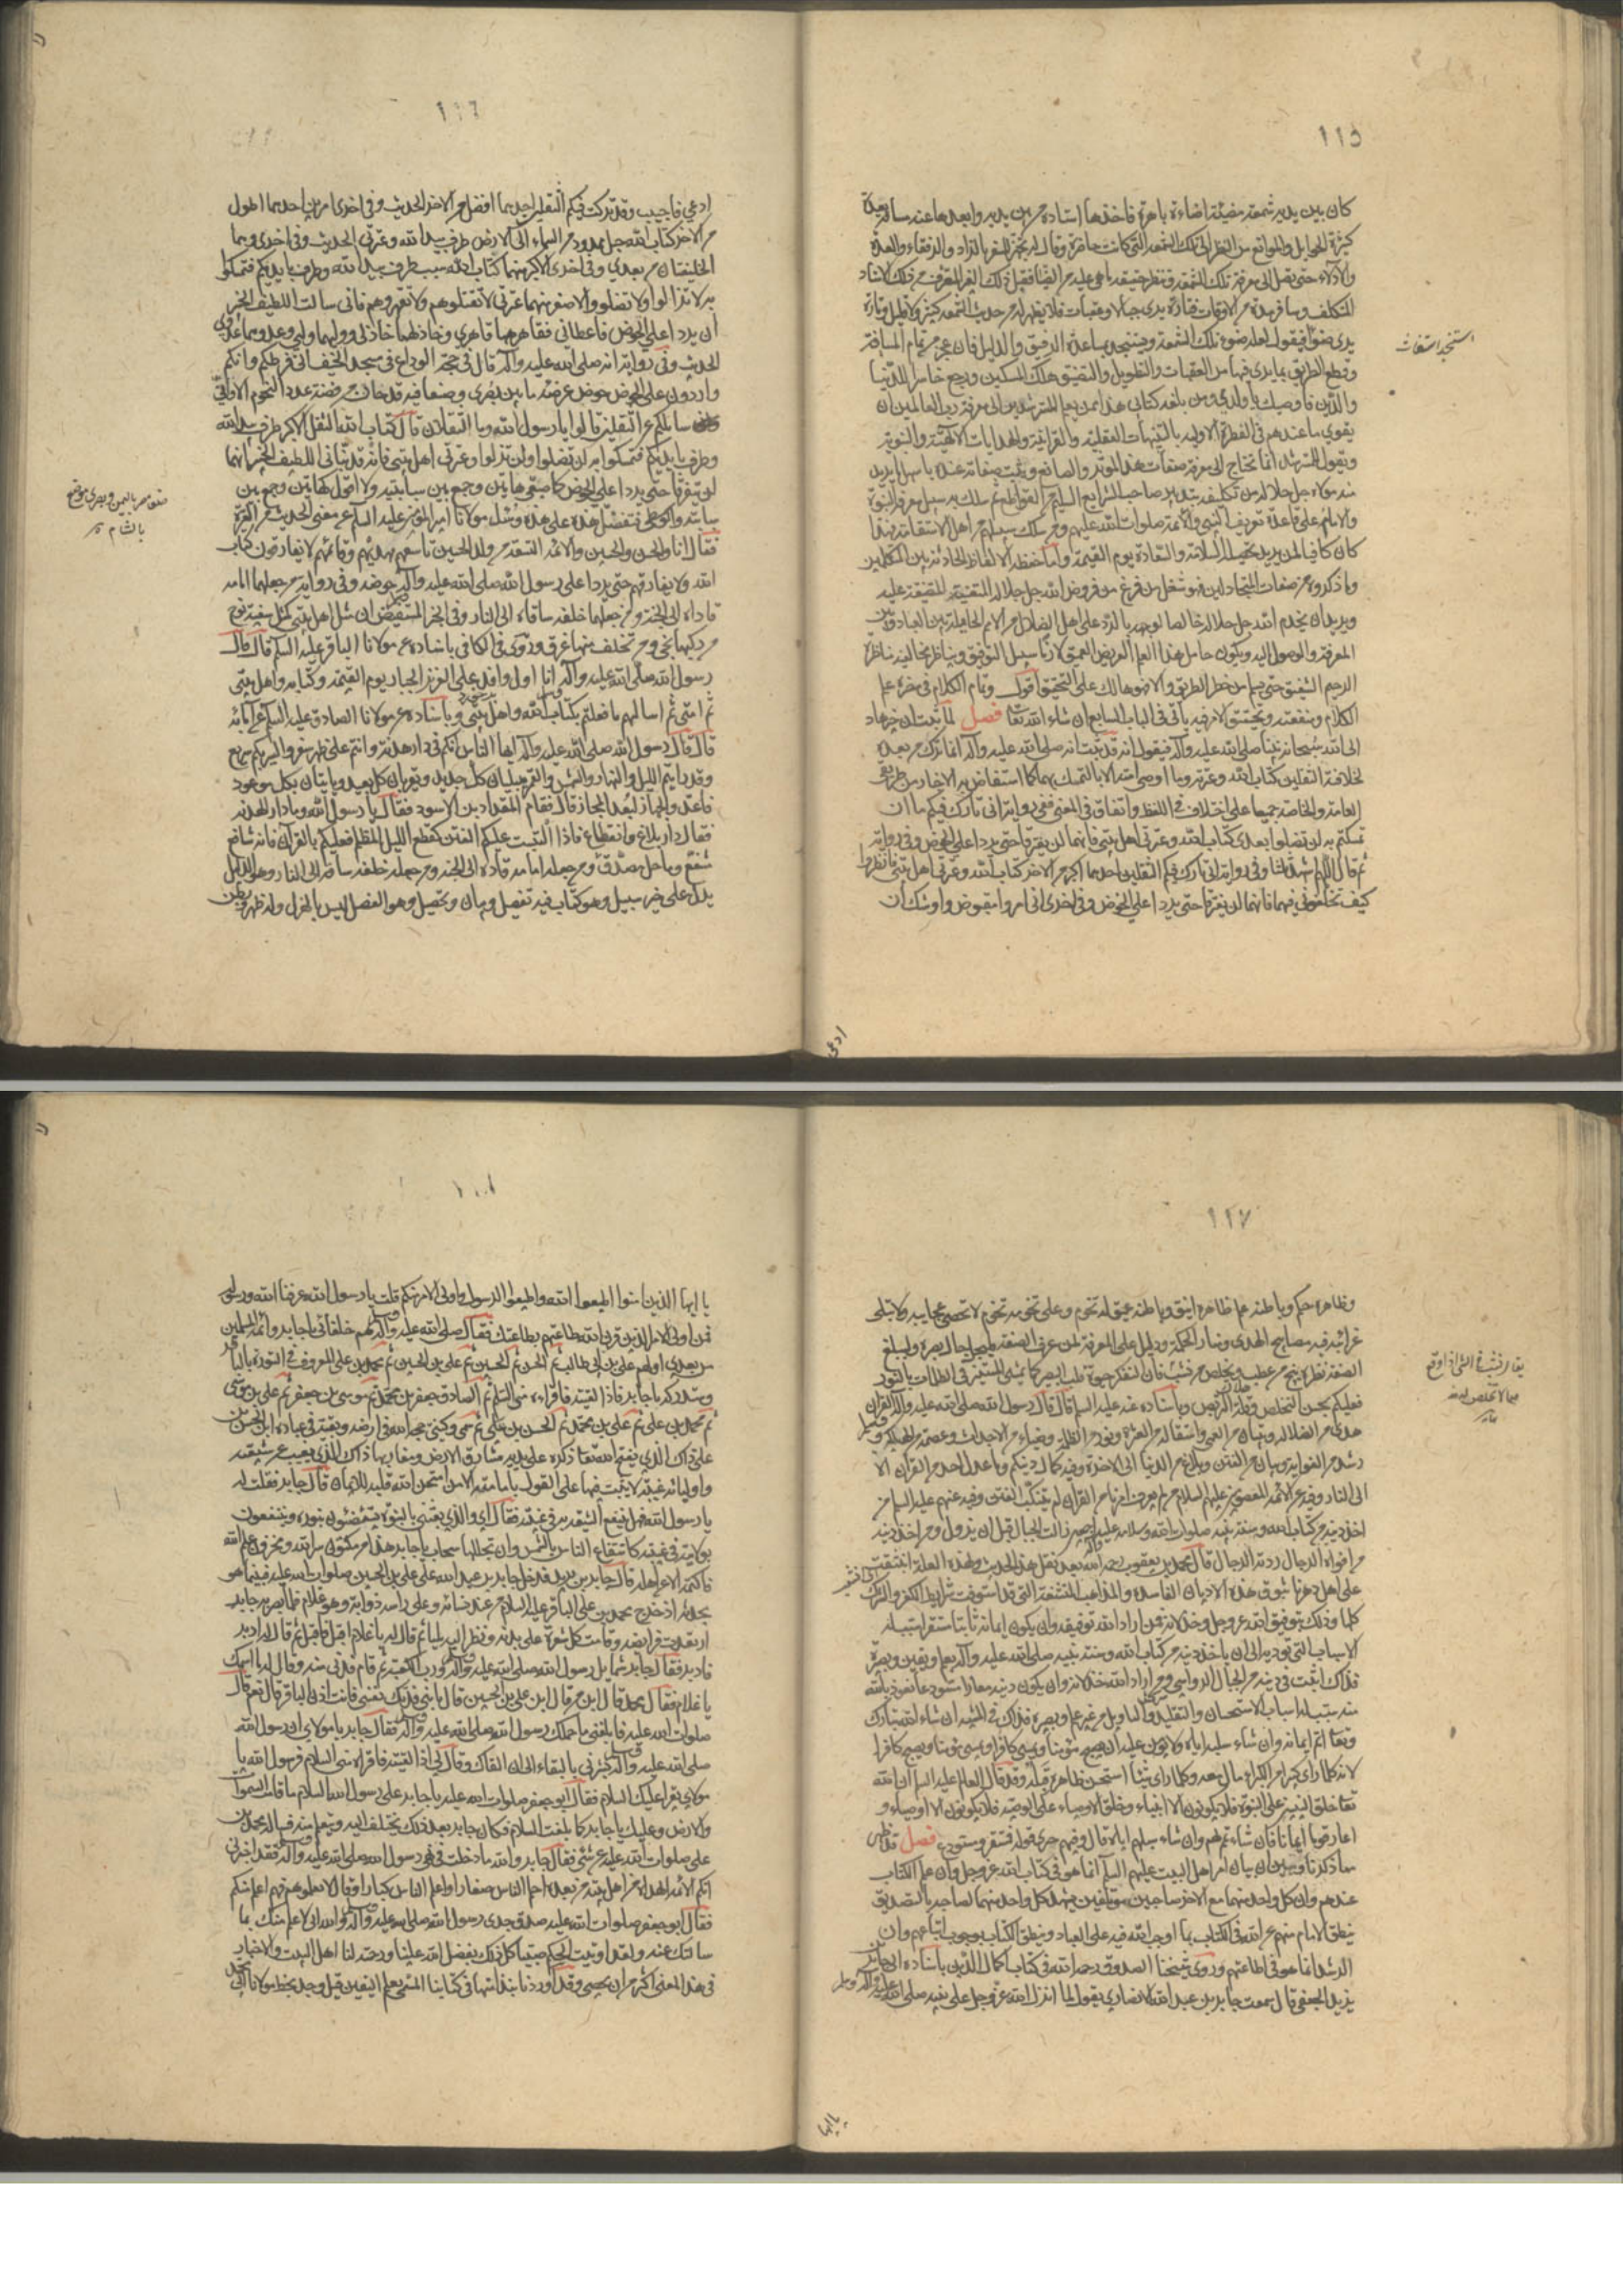 ١١٥
كان بين يديه شمعة مضيئة اضاءة باهرة فاخذها استاده من بين يديه وابعدها عنه مسافة بعيدة
كثيرة الحوايل والموانع من النظر الى تلك الشمعة التي كانت حاضرة وقال له تجهز للسفر بالزاد والرفقاء والعدة
والادلاء حتى تصل الى معرفة تلك الشمعة وتنظر حقيقة ما هي عليه من الضيا فقبل ذلك الغر المعرفة من ذلك الاستاد
المتكلف وسافر مدة من الاوقات فتارة يرى جبالا وعقبات فلا يظهر له من حديث الشمعة كثير ولا قليل وتارة
يرى ضوءا فيقول لعله ضوء تلك الشمعة ويستنجد بمساعدة الرفيق والدليل فان عجز من تمام المسافة
وقطع الطريق بما يرى فيها من العقبات والتطويل والتضيق هلك المسكين ورجع خاسرا للدنيا
والدين فاوصيك يا ولدي ومن بلغه كتابي هذا ممن يعلم المسترشدين الى معرفة رب العالمين ان
يقوي ما عندهم في الفطرة الاولية بالتنبيهات العقلية والقرآنية والهدايات الالهية والنبوية
ويقول للمسترشد انما تحتاج الى معرفة صفات هذا المؤثر والصانع ويثبت صفاته عنده باسهل ما يريد
منه مولاه جل جلاله من تكليفه بتدبير صاحب الشرايع السليم من القواطع ثم يسلك به سبيل معرفة النبوة
والامام على قاعدة تعريف النبي والائمة صلوات الله عليهم ومن سلك سبيلهم من اهل الاستقامة فهذا
كان كافيا لمن يريد تحصيل السلامة والسعادة يوم القيمة واما حفظ الالفاظ الحادثة بين المتكلمين
وما ذكروه من صفات المتجادلين فهو شغل من فرغ من فروض الله جل جلاله المتعينة المتضيقة عليه
ويريد ان يخدم الله جل جلاله خالصا لوجهه بالرد على اهل الضلال من الامم الحايلة بين العباد وبين
المعرفة والوصول اليه ويكون حامل هذا العلم العريض العميق لازما سبيل التوفيق ويناظر مخالفيه مناظرة
الرحيم الشفيق حتى يسلم من خطر الطريق والا فهو هالك على التحقيق اقول وتمام الكلام في مضرة علم
الكلام ومنفعته وتحقيق الامر فيه ياتي في الباب السابع ان شاء الله تعا فصل
الى الله سبحانه نبينا صلى الله عليه وآله فنقول انه قد ثبت انه صلى الله عليه وآله انما ترك من بعده
لخلافته الثقلين كتاب الله وعترته وما اوصى امته الا بالتمسك بهما كما استفاض به الاخبار من طريقي
العامة والخاصة جميعا على اختلاف في اللفظ واتفاق في المعنى ففي رواية اني تارك فيكم ما ان
تمسكتم به لن تضلوا بعدي كتاب الله وعترتي اهل بيتي فانهما لن يفترقا حتى يردا علي الحوض وفي رواية
ثم قال اللهم اشهد ثلثا وفي رواية اني تارك فيكم الثقلين احدهما اكبر من الاخر كتاب الله وعترتي اهل بيتي فانظروا
كيف تخلفوني فيهما فانهما لن يفترقا حتى يردا علي الحوض وفي اخرى اني امرؤ مقبوض واوشك ان
استنجد استغاث
ادعى
١١٦
ادعى فاجيب وقد تركت فيكم الثقلين احدهما افضل من الاخر الحديث وفي اخرى امرين احدهما اطول
من الاخر كتاب الله حبل ممدود من السماء الى الارض طرف بيد الله وعترتي الحديث وفي اخرى وهما
الخليفتان من بعدي وفي اخرى الاكبر منهما كتاب الله سبب طرف بيد الله وطرف بايديكم فتمسكوا
به لا تزالوا ولا تضلوا والاصغر منهما عترتي لا تقتلوهم ولا تقهروهم فاني سالت اللطيف الخبير
ان يردا علي الحوض فاعطاني فقاهرهما قاهري وخاذلهما خاذلي ووليهما وليي وعدوهما عدوي
الحديث وفي رواية انه صلى الله عليه وآله قال في حجة الوداع في مسجد الخيف اني فرطكم وانكم
واردون علي الحوض حوض عرضه ما بين بصرى وصنعا فيه قدحان من فضة عدد النجوم الا واني
سائلكم عن الثقلين قالوا يا رسول الله وما الثقلان قال كتاب الله الثقل الاكبر طرف بيد الله
وطرف بايديكم فتمسكوا به لن تضلوا ولن تزلوا وعترتي اهل بيتي فانه قد نبأني اللطيف الخبير انهما
لن يفترقا حتى يردا علي الحوض كاصبعي هاتين وجمع بين سبابتيه ولا اقول كهاتين وجمع بين
سبابته والوسطى فتفضل هذه على هذه وسئل مولانا امير المؤمنين عليه السلام عن معنى الحديث من العترة
فقال انا والحسن والحسين والائمة التسعة من ولد الحسين تاسعهم مهديهم وقائمهم لا يفارقون كتاب
الله ولا يفارقهم حتى يردا على رسول الله صلى الله عليه وآله حوضه وفي رواية من جعلهما امامه
قاداه الى الجنة ومن جعلهما خلفه ساقاه الى النار وفي الخبر المستفيض ان مثل اهل بيتي كمثل سفينة نوح
من ركبها نجى ومن تخلف عنها غرق وروى في الكافي باسناده عن مولانا الباقر عليه السلم قال قال
رسول الله صلى الله عليه وآله انا اول وافد على العزيز الجبار يوم القيمة وكتابه واهل بيتي
ثم امتي ثم اسالهم ما فعلتم بكتاب الله واهل بيتي وباسناده عن مولانا الصادق عليه السلم عن آبائه
قال قال رسول الله صلى الله عليه وآله ايها الناس انكم في دار هدنة وانتم على ظهر سفر والسير بكم سريع
وقد رايتم الليل والنهار والشمس والقمر يبليان كل جديد ويقربان كل بعيد وياتيان بكل موعود
فاعدوا الجهاز لبعد المجاز قال فقام المقداد بن الاسود فقال يا رسول الله وما دار الهدنة
فقال دار بلاغ وانقطاع فاذا التبست عليكم الفتن كقطع الليل المظلم فعليكم بالقرآن فانه شافع
مشفع وماحل مصدق ومن جعله امامه قاده الى الجنة ومن جعله خلفه ساقه الى النار وهو الدليل
يدل على خير سبيل وهو كتاب فيه تفصيل وبيان وتحصيل وهو الفصل ليس بالهزل وله ظهر وبطن
بالشام
١١٧
وظاهره حكم وباطنه علم ظاهره انيق وباطنه عميق له تخوم وعلى تخومه تخوم لا تحصى عجايبه ولا تبلى
غرائبه فيه مصابيح الهدى ومنار الحكمة ودليل على المعرفة لمن عرف الصفة فليجل جال بصره وليبلغ
الصفة نظره ينج من عطب ويخلص من نشب فان التفكر حيوة قلب البصير كما يمشي المستنير في الظلمات بالنور
فعليكم بحسن التخلص وقلة التربص وباسناده عنه عليه السلم قال قال رسول الله صلى الله عليه وآله القرآن
هدى من الضلالة وتبيان من العمى واستقالة من العثرة ونور من الظلمة وضياء من الاحداث وعصمة من الهلكة و
رشد من الغواية وبيان من الفتن وبلاغ من الدنيا الى الاخرة وفيه كمال دينكم وما عدل احد من القرآن الا
الى النار وفيه عن الائمة المعصومين عليهم السلام من لم يعرف امرنا من القرآن لم يتنكب الفتن وفيه عنهم عليه السلم من
اخذ دينه من كتاب الله وسنة نبيه صلوات الله وسلامه عليه وآله زالت الجبال قبل ان يزول ومن اخذ دينه
من افواه الرجال ردته الرجال قال محمد بن يعقوب رحمه الله بعد نقل هذا الحديث ولهذه العلة انبثقت
على اهل دهرنا بثوق هذه الاديان الفاسدة والمذاهب المستشنعة التي قد استوفت شرايط الكفر والشرك
كلها وذلك بتوفيق الله عز وجل وخذلانه فمن اراد الله توفيقه وان يكون ايمانه ثابتا مستقرا سبب له
الاسباب التي تؤديه الى ان ياخذ دينه من كتاب الله وسنة نبيه صلى الله عليه وآله بعلم ويقين وبصيرة
فذاك اثبت في دينه من الجبال الرواسي ومن اراد الله خذلانه وان يكون دينه معارا مستودعا نعوذ بالله
منه سبب له اسباب الاستحسان والتقليد والتاويل من غير علم وبصيرة فذاك في المشية ان شاء الله تبارك
وتعا اتم ايمانه وان شاء سلبه اياه ولا يؤمن عليه ان يصبح مؤمنا ويمسي كافرا او يمسي مؤمنا ويصبح كافرا
لانه كلما راى كبيرا من الكبراء مال معه وكلما راى شيئا استحسن ظاهره قبله وقد قال العالم عليه السلم ان الله
تعا خلق النبيين على النبوة فلا يكونون الا انبياء وخلق الاوصياء على الوصية فلا يكونون الا اوصياء و
اعار قوما ايمانا فان شاء تممه لهم وان شاء سلبهم اياه قال وفيهم جرى قوله فمستقر ومستودع فصل قد ظهر
مما ذكرنا وتبين ان بيان امر اهل البيت عليهم السلم انما هو في كتاب الله عز وجل وان علم الكتاب
عندهم وان كل واحد منهما مع الاخر صاحبين مؤتلفين يشهد كل واحد منهما لصاحبه بالتصديق
ينطق الامام منهم عن الله في الكتاب بما اوجب الله فيه على العباد وينطق الكتاب بوجوب اتباعهم وان
الرشد انما هو في اطاعتهم وروى شيخنا الصدوق رحمه الله في كتاب اكمال الدين باسناده الى جابر بن
يزيد الجعفي قال سمعت جابر بن عبد الله الانصاري يقول لما انزل الله عز وجل على نبيه صلى الله عليه وآله وسلم
يا ايها
يا ايها الذين امنوا اطيعوا الله واطيعوا الرسول واولي الامر منكم قلت يا رسول الله عرفنا الله ورسوله
فمن اولي الامر الذين قرن الله طاعتهم بطاعتك فقال صلى الله عليه وآله هم خلفائي يا جابر وائمة المسلمين
من بعدي اولهم علي بن ابي طالب ثم الحسن ثم الحسين ثم علي بن الحسين ثم محمد بن علي المعروف في التورية بالباقر
وستدركه يا جابر فاذا لقيته فاقراه مني السلم ثم الصادق جعفر بن محمد ثم موسى بن جعفر ثم علي بن موسى
ثم محمد بن علي ثم علي بن محمد ثم الحسن بن علي ثم سميي وكنيي حجة الله في ارضه وبقيته في عباده ابن الحسن بن
علي ذاك الذي يفتح الله تعا ذكره على يديه مشارق الارض ومغاربها ذاك الذي يغيب عن شيعته
واوليائه غيبة لا يثبت فيها على القول بامامته الا من امتحن الله قلبه للايمان قال جابر فقلت له
يا رسول الله فهل ينتفع الشيعة به في غيبته فقال اي والذي بعثني بالنبوة يستضيئون بنوره وينتفعون
بولايته في غيبته كانتفاع الناس بالشمس وان تجللها سحاب يا جابر هذا من مكنون سر الله ومخزون علم الله
فاكتمه الا عن اهله قال جابر بن يزيد فدخل جابر بن عبد الله على علي بن الحسين صلوات الله عليه فبينما هو
يحدثه اذ خرج محمد بن علي الباقر عليه السلام من عند نسائه وعلى راسه ذوابة وهو غلام فلما بصر به جابر
ارتعدت فرائصه وقامت كل شعرة على بدنه ونظر اليه مليا ثم قال له يا غلام اقبل فاقبل ثم قال له ادبر
فادبر فقال جابر شمايل رسول الله صلى الله عليه وآله ورب الكعبة ثم قام فدنى منه وقال له ما اسمك
يا غلام فقال محمد قال ابن من قال ابن علي بن الحسين قال يا بني فدتك نفسي فانت اذن الباقر قال نعم قال
صلوات الله عليه فابلغني ما حملك رسول الله صلى الله عليه وآله فقال جابر يا مولاي ان رسول الله
صلى الله عليه وآله بشرني بالبقاء الى ان القاك وقال لي اذا لقيته فاقراه مني السلام فرسول الله يا
مولاي يقرا عليك السلام فقال ابو جعفر صلوات الله عليه يا جابر على رسول الله السلام ما قامت السموات
والارض وعليك يا جابر كما بلغت السلام فكان جابر بعد ذلك يختلف اليه ويتعلم منه فساله محمد بن
علي صلوات الله عليه عن شيء فقال جابر والله ما دخلت في نهي رسول الله صلى الله عليه وآله فقد اخبرني
انكم الائمة الهداة من اهل بيته من بعده احلم الناس صغارا واعلم الناس كبارا وقال لا تعلموهم فهم اعلم منكم
فقال ابو جعفر صلوات الله عليه صدق جدي رسول الله صلى الله عليه وآله والله اني لاعلم منك بما
سالتك عنه ولقد اوتيت الحكم صبيا كل ذلك بفضل الله علينا ورحمته لنا اهل البيت والاخبار
في هذا المعنى اكثر من ان يحصى وقد اوردنا نبذا منها في كتابنا المسمى بعلم اليقين